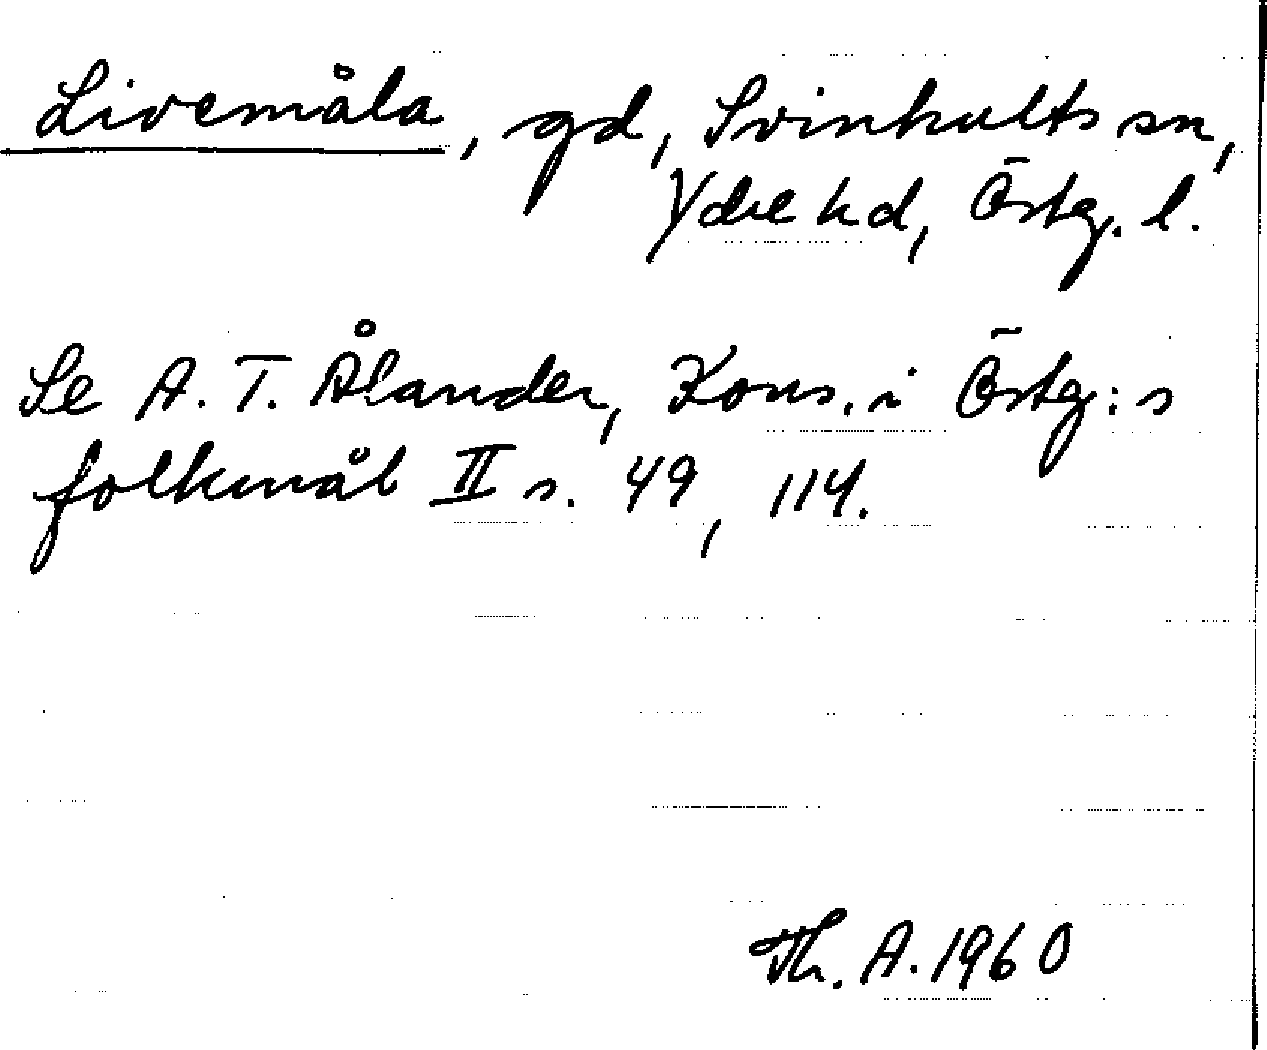 Livemåla, gd, Svinhults sn,
Ydre hd, Östg. l.
Se A. T. Ålander, Kons. i Östg:s
folkmål II s. 49, 114.
Th. A. 1960